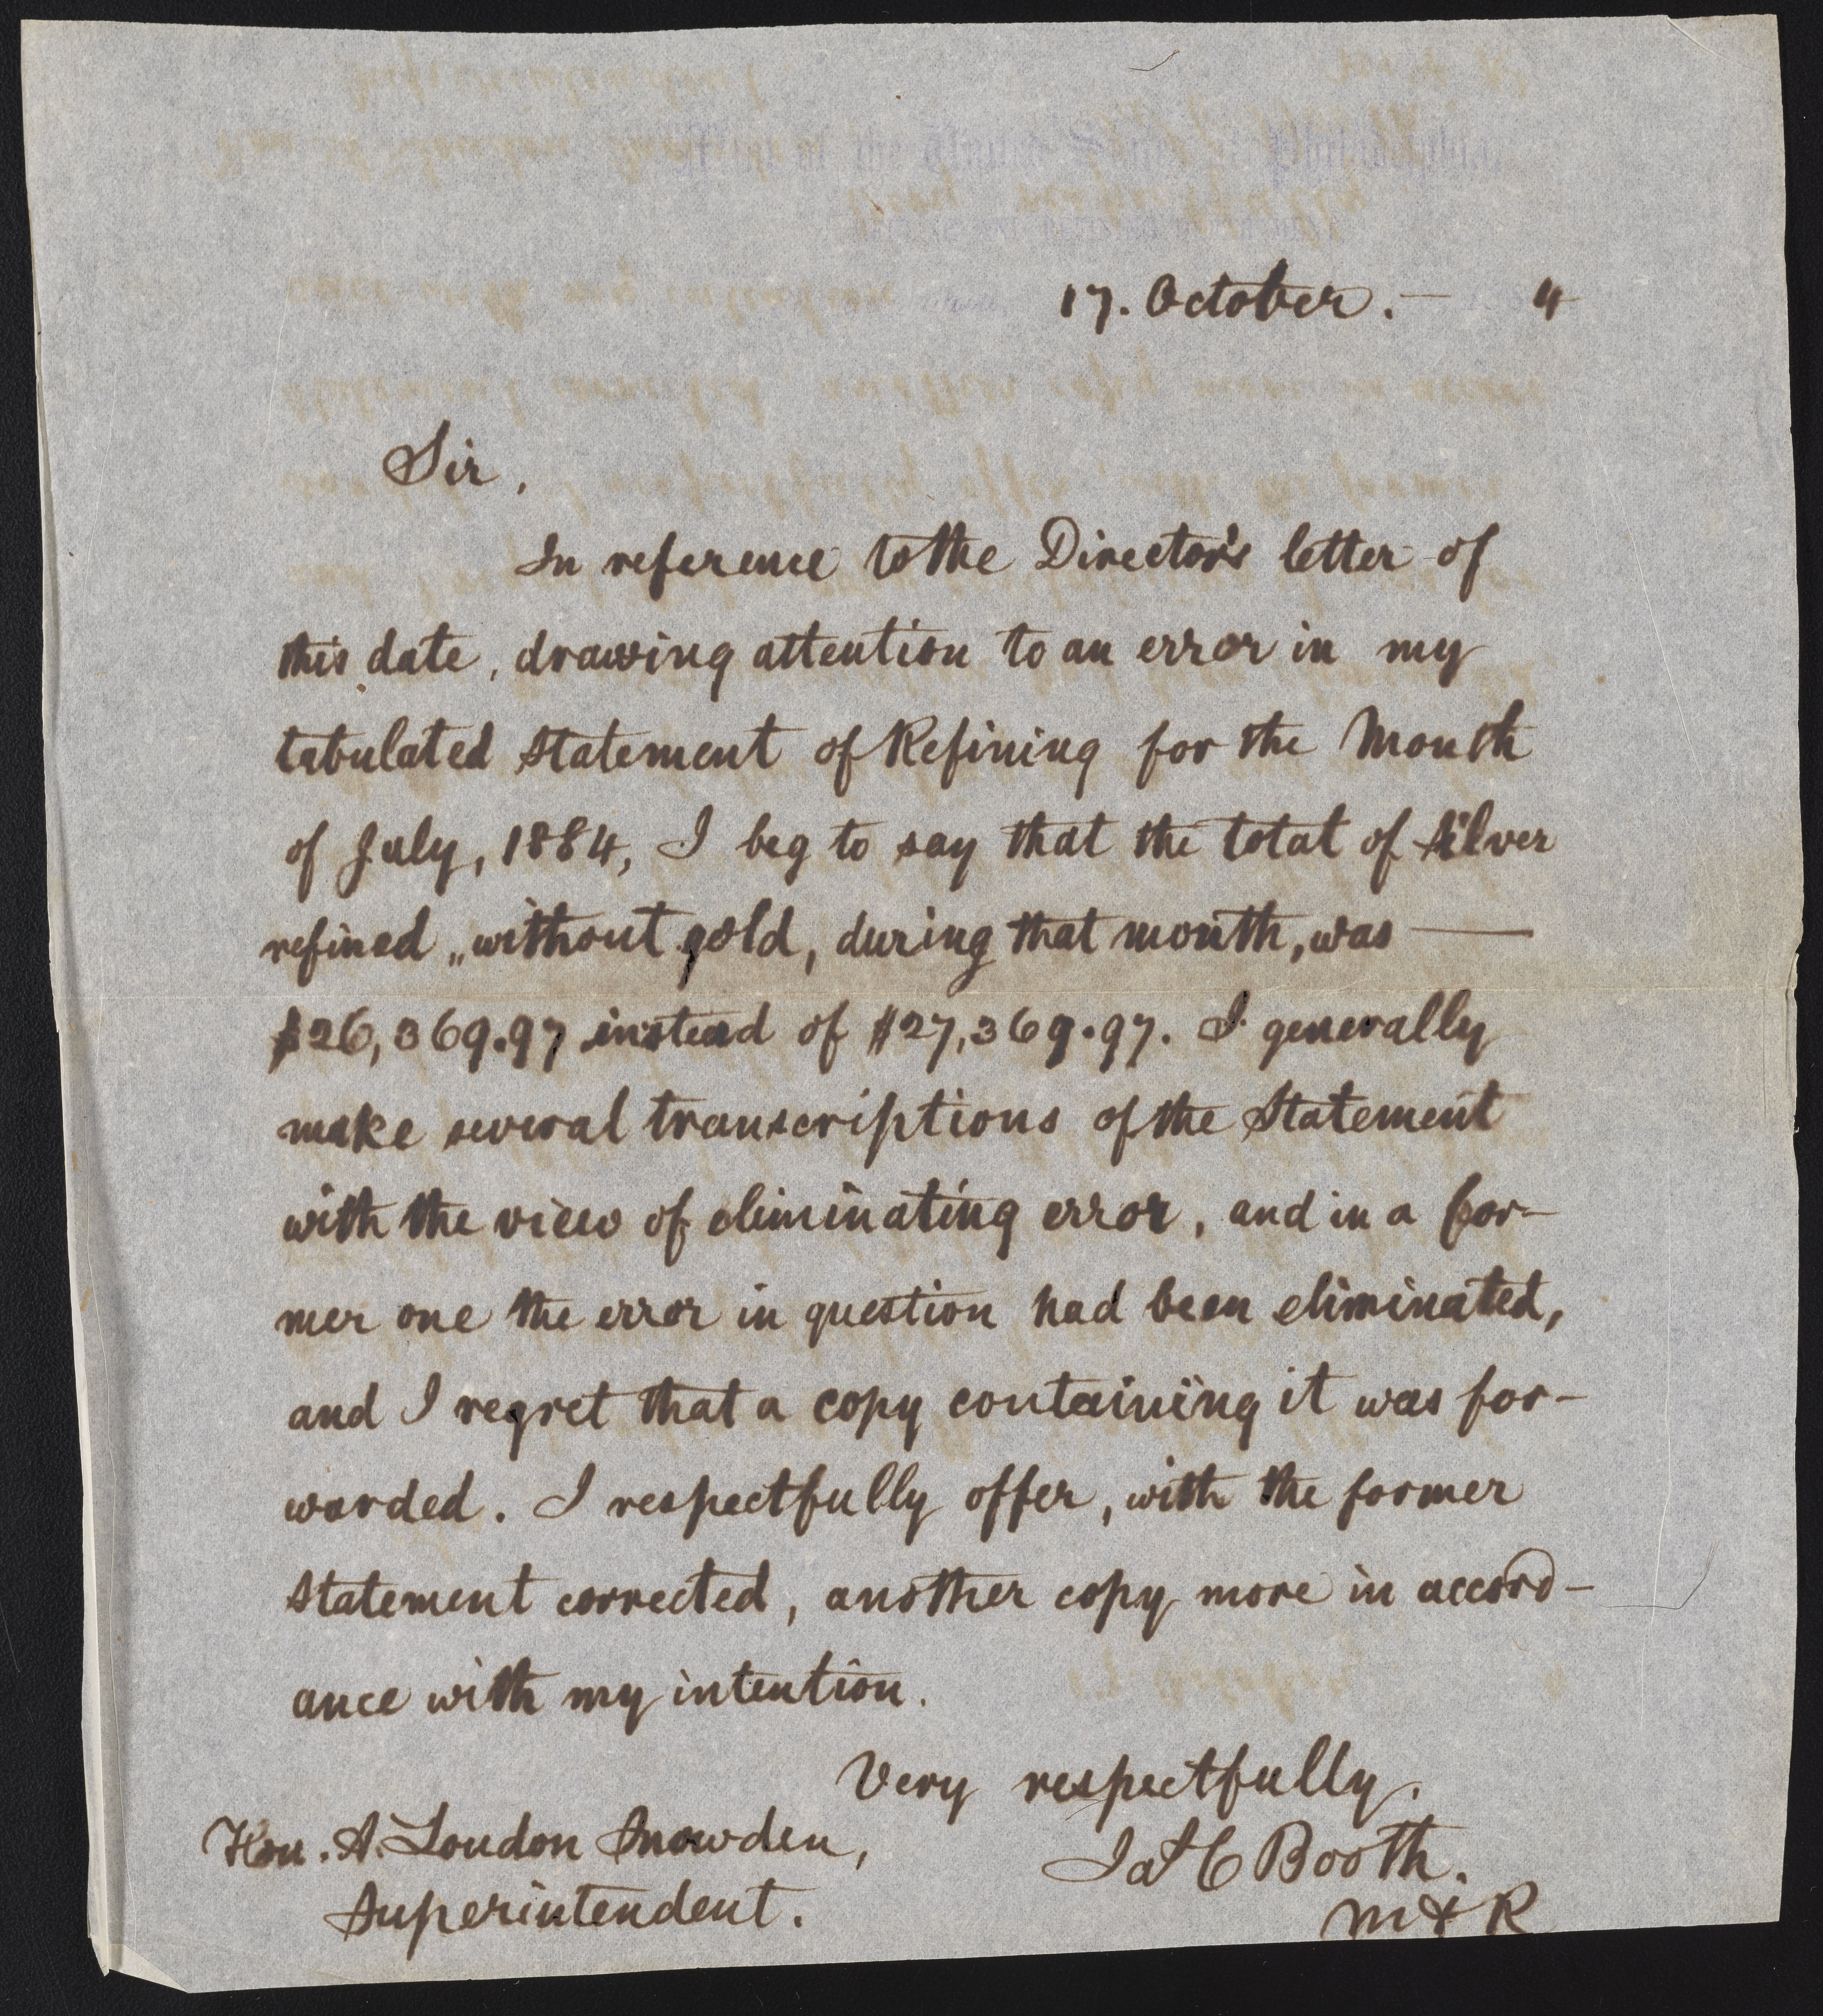 Mint of the United States at Philadelphia
17. October. — 1884
Sir,
In reference to the Director's letter of
this date, drawing attention to an error in my
tabulated Statement of Refining for the Month
of July, 1884, I beg to say that the total of Silver
refined „without gold, during that month, was —
$26,369.97 instead of $27,369.97. I generally
make several transcriptions of the Statement
with the view of eliminating error, and in a for-
mer one the error in question had been eliminated,
and I regret that a copy containing it was for-
warded. I respectfully offer, with the former
Statement corrected, another copy more in accord-
ance with my intention.
Very respectfully,
Hon. A. Loudon Snowden,
Jas C Booth.
Superintendent.
M & R